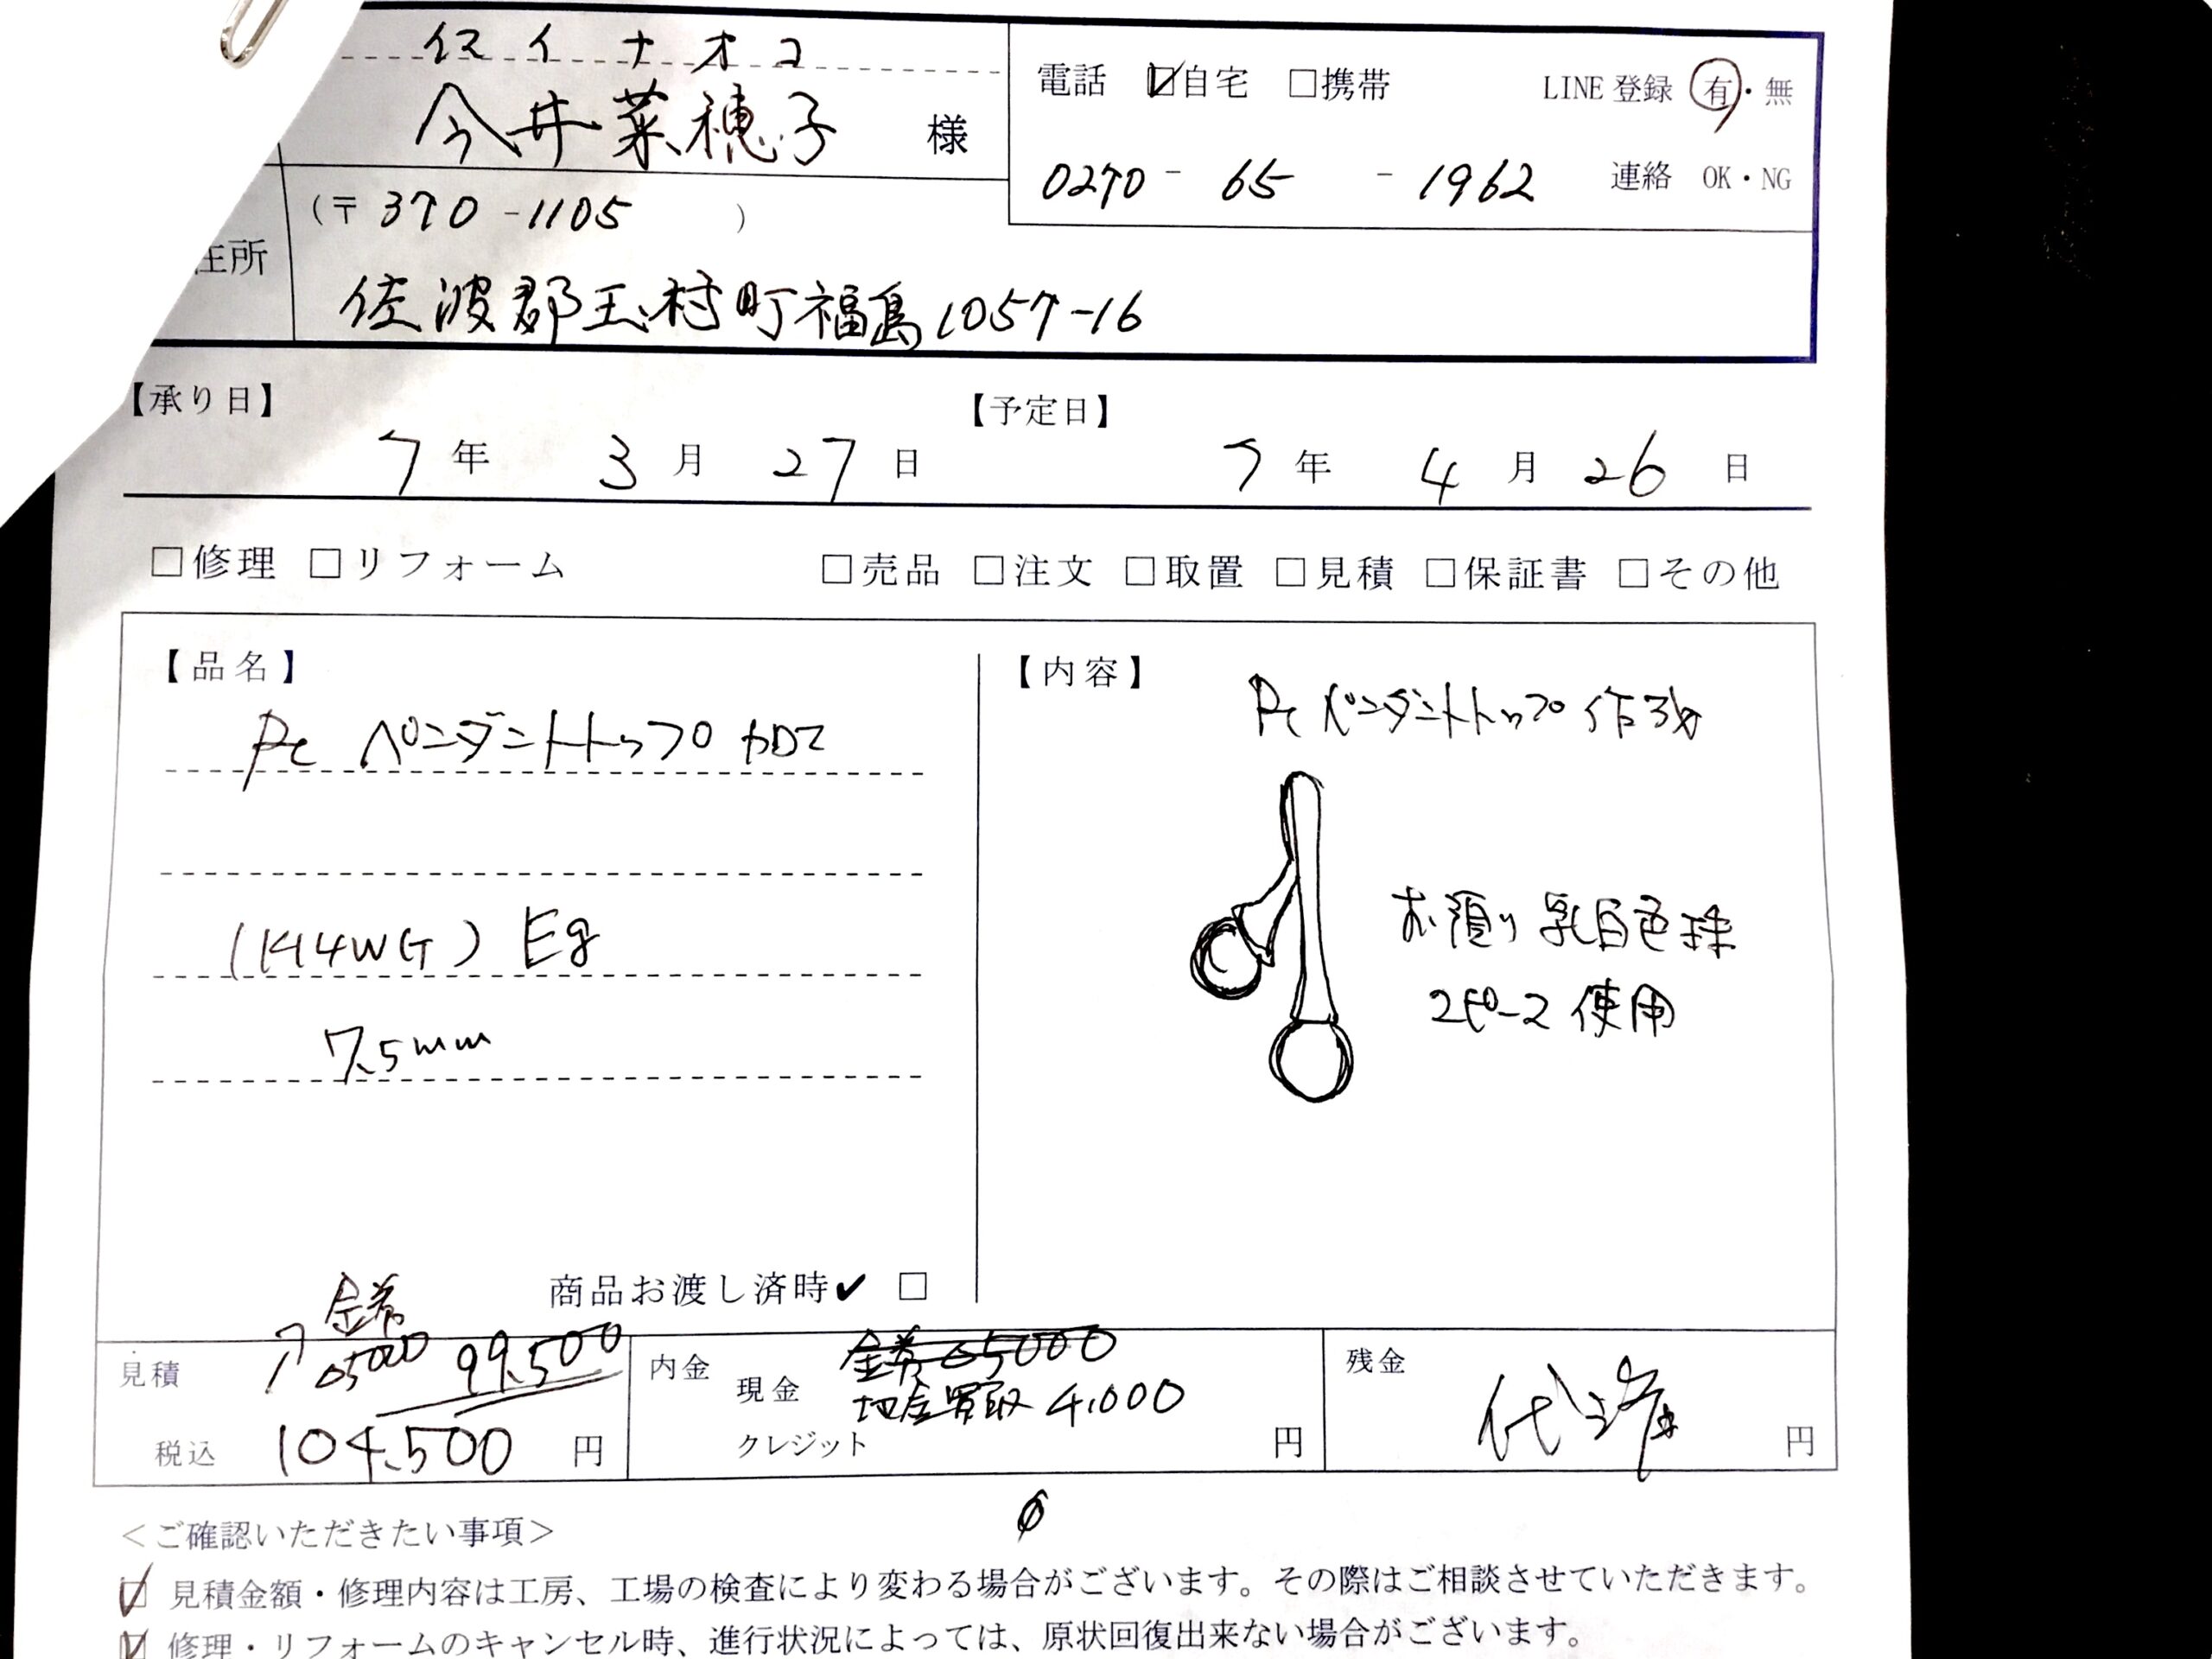 イマイ ナオコ
今井菜穂子 様
電話 ☑自宅 □携帯 LINE登録 有・無
0270-65-1962 連絡 OK・NG
(〒370-1105 )
住所
佐波郡玉村町福島1057-16
【承り日】 【予定日】
7年 3月 27日 7年 4月 26日
□修理 □リフォーム □売品 □注文 □取置 □見積 □保証書 □その他
【品名】
Pt ペンダントトップ加工
(K14WG) Eg
7.5mm
【内容】
Pt ペンダントトップ作成
お預り乳白色珠
2ピース使用
商品お渡し済時✔ □
金券
5000 99,500
見積
税込 104,500 円
内金
金券 5000
現金 地金買取 4,000
クレジット 円
残金
円
<ご確認いただきたい事項>
☑ 見積金額・修理内容は工房、工場の検査により変わる場合がございます。その際はご相談させていただきます。
☑ 修理・リフォームのキャンセル時、進行状況によっては、原状回復出来ない場合がございます。